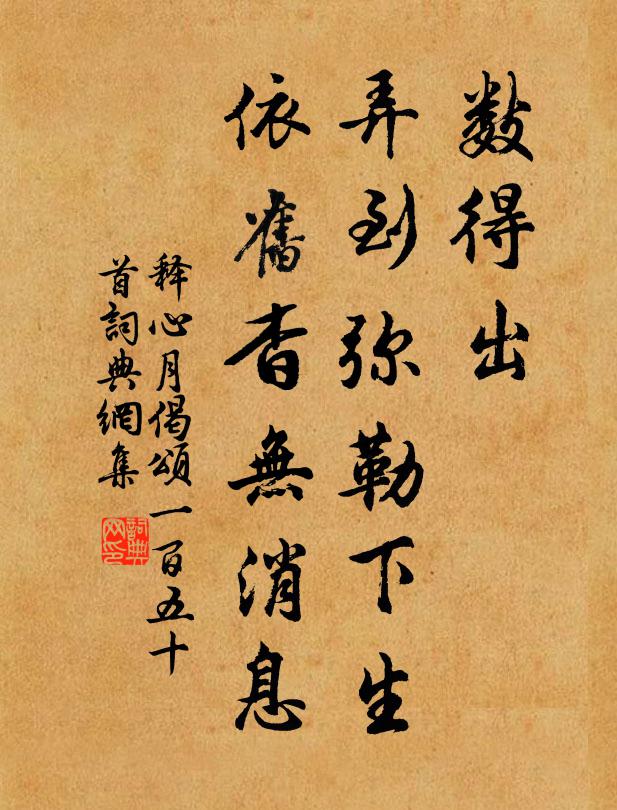 數得出
弄到弥勒下生
依舊杳無消息
释心月偈頌一百五十
首詞典網集
詞典网印